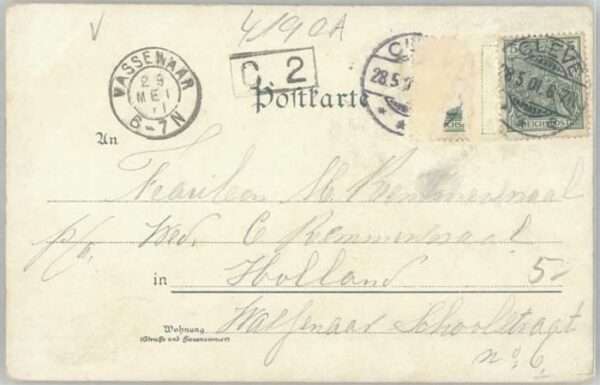 4190A
WASSENAAR
29
MEI
01
6-7N
C 2
Postkarte
CL
28.5.0
CLEVE
28.5.01.6-7N
REICHSPOST
An
M. Remmerswaal
p/a. Wed. C Remmerswaal
in Holland 5
Wohnung
(Straße und Hausnummer)
Wassenaar Schoolstraat
no. 6